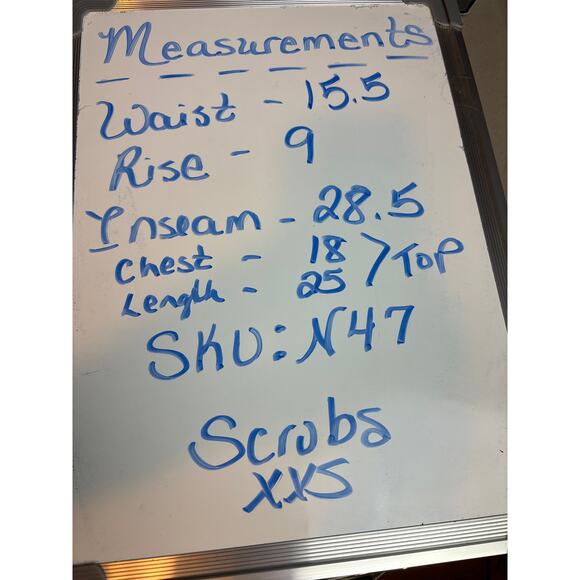 Measurements
Waist - 15.5
Rise - 9
Inseam - 28.5
Chest - 18
Length - 25 > Top
SKU: N47
Scrubs
XXS